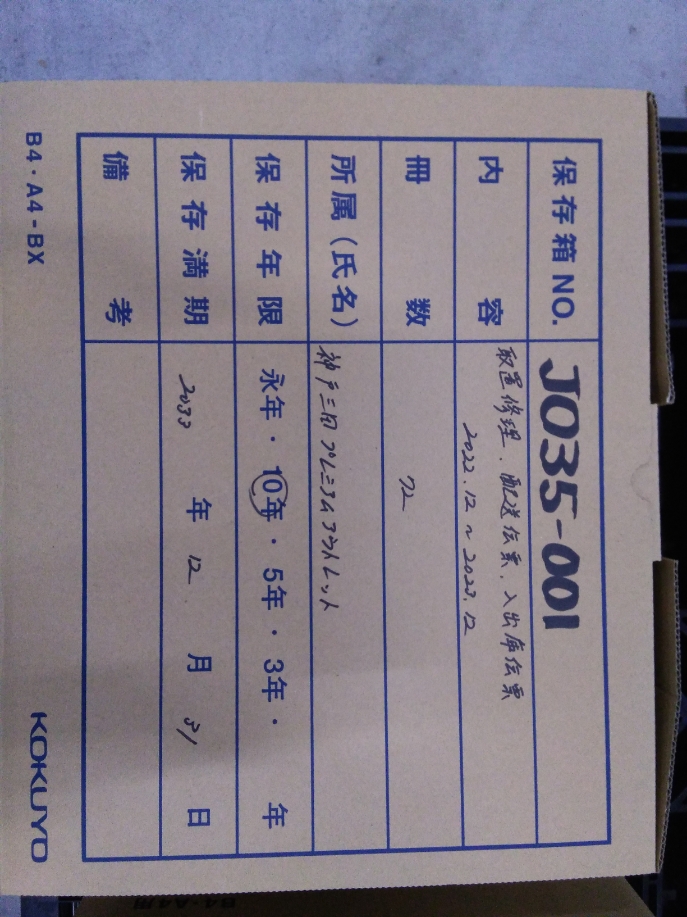 保存箱NO. J035-001
内容 取置修理、配送伝票、入出庫伝票
2022.12~2023.12
冊数 72
所属(氏名) 神戸三田プレミアムアウトレット
保存年限 永年・10年・5年・3年・ 年
保存満期 2033年12月31日
備考
B4・A4-BX KOKUYO